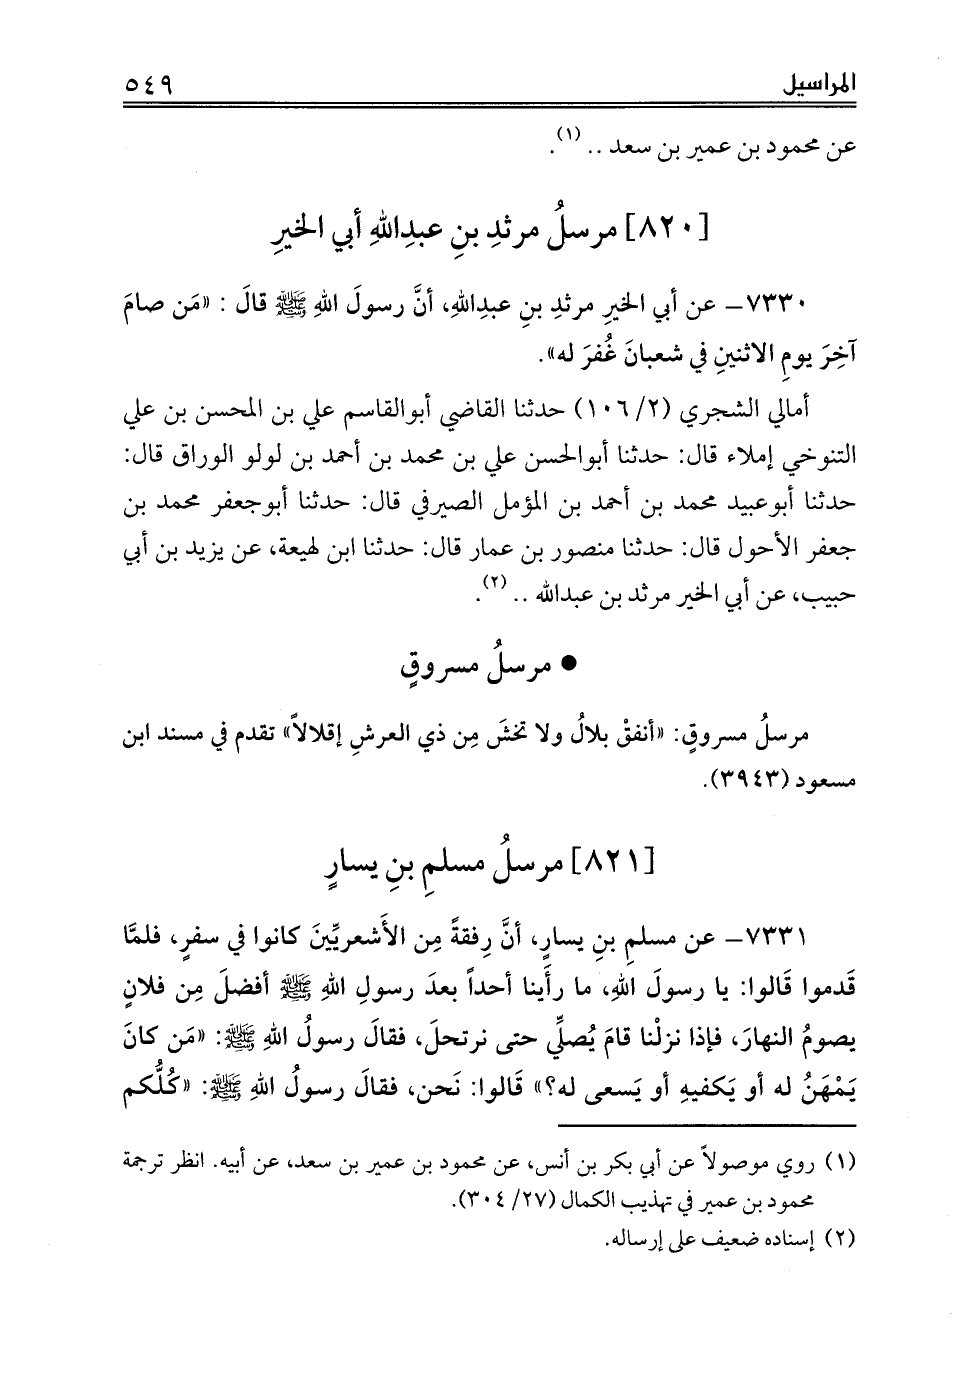 المراسيل ٥٤٩
عن محمود بن عمير بن سعد .. (١).
[٨٢٠] مرسلُ مرثدِ بنِ عبدِاللهِ أبي الخيرِ
٧٣٣٠- عن أبي الخيرِ مرثدِ بنِ عبدِاللهِ، أنَّ رسولَ اللهِ ﷺ قالَ: «مَن صامَ
آخِرَ يومِ الاثنينِ في شعبانَ غُفرَ له».
أمالي الشجري (٢/ ١٠٦) حدثنا القاضي أبوالقاسم علي بن المحسن بن علي
التنوخي إملاء قال: حدثنا أبوالحسن علي بن محمد بن أحمد بن لولو الوراق قال:
حدثنا أبوعبيد محمد بن أحمد بن المؤمل الصيرفي قال: حدثنا أبوجعفر محمد بن
جعفر الأحول قال: حدثنا منصور بن عمار قال: حدثنا ابن لهيعة، عن يزيد بن أبي
حبيب، عن أبي الخير مرثد بن عبدالله .. (٢).
● مرسلُ مسروقٍ
مرسلُ مسروقٍ: «أنفقْ بلالُ ولا تخشَ مِن ذي العرشِ إقلالاً» تقدم في مسند ابن
مسعود (٣٩٤٣).
[٨٢١] مرسلُ مسلمِ بنِ يسارٍ
٧٣٣١- عن مسلمِ بنِ يسارٍ، أنَّ رِفقةً مِن الأَشعريِّينَ كانوا في سفرٍ، فلمَّا
قَدموا قَالوا: يا رسولَ اللهِ، ما رأَينا أحداً بعدَ رسولِ اللهِ ﷺ أفضلَ مِن فلانٍ
يصومُ النهارَ، فإذا نزلْنا قامَ يُصلِّي حتى نرتحلَ، فقالَ رسولُ اللهِ ﷺ: «مَن كانَ
يَمْهَنُ له أو يَكفيهِ أو يَسعى له؟» قَالوا: نَحن، فقالَ رسولُ اللهِ ﷺ: «كُلُّكم
(١) روي موصولاً عن أبي بكر بن أنس، عن محمود بن عمير بن سعد، عن أبيه. انظر ترجمة
محمود بن عمير في تهذيب الكمال (٢٧/ ٣٠٤).
(٢) إسناده ضعيف على إرساله.